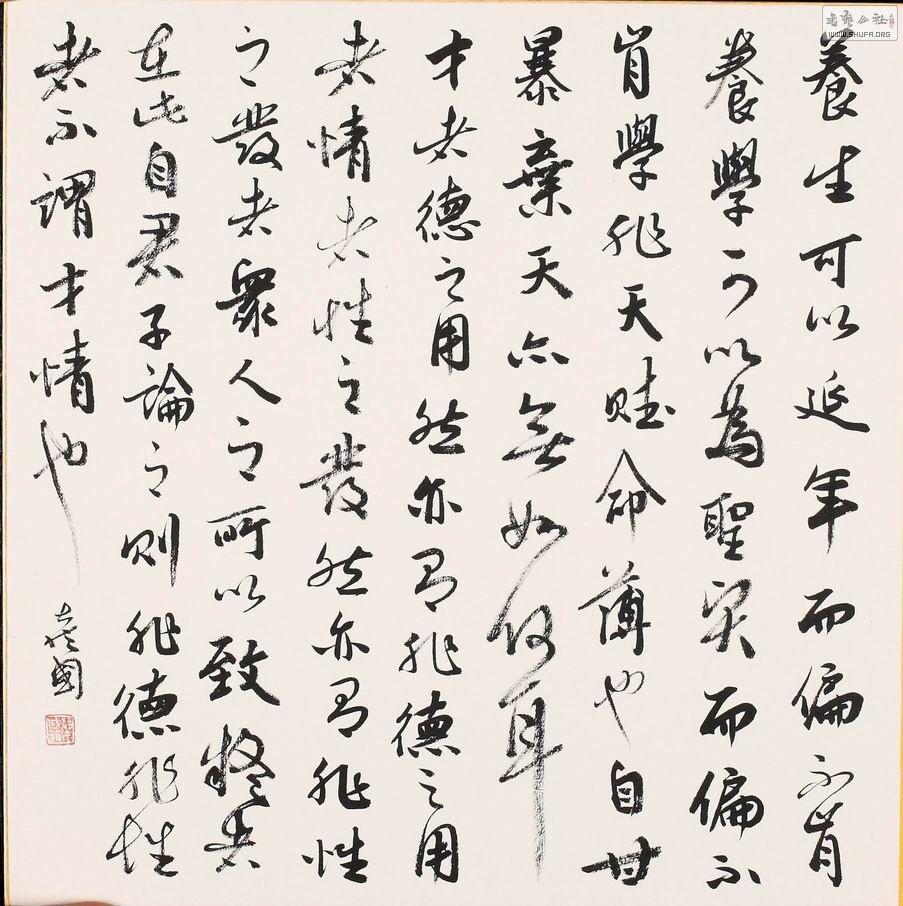 書藝公社
WWW.SHUFA.ORG
養生可以延年而偏不肯
養學可以為聖賢而偏不
肯學非天賦命薄也自甘
暴棄天亦無如何耳
才者德之用然亦有非德之用
者情者性之發然亦有非性
之發者衆人之所以致疑者
在此自君子論之則非德非性
者不謂才情也
國